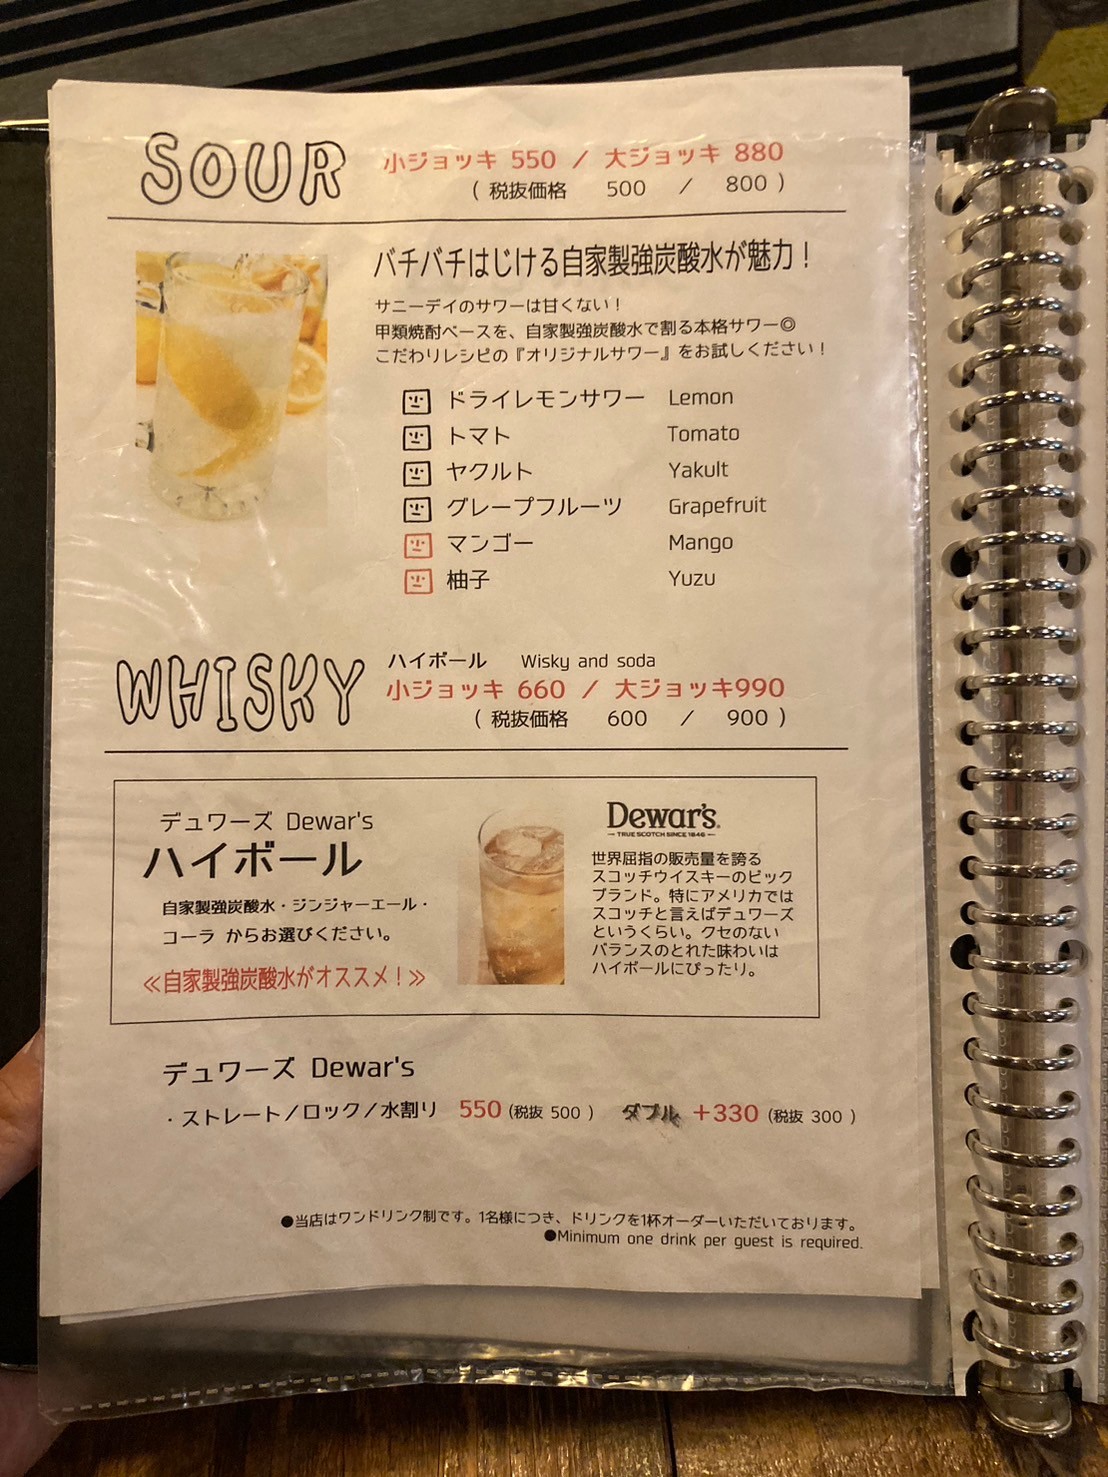 SOUR
小ジョッキ 550 / 大ジョッキ 880
( 税抜価格 500 / 800 )
バチバチはじける自家製強炭酸水が魅力！
サニーデイのサワーは甘くない！
甲類焼酎ベースを、自家製強炭酸水で割る本格サワー◎
こだわりレシピの『オリジナルサワー』をお試しください！
ドライレモンサワー Lemon
トマト Tomato
ヤクルト Yakult
グレープフルーツ Grapefruit
マンゴー Mango
柚子 Yuzu
WHISKY
ハイボール Wisky and soda
小ジョッキ 660 / 大ジョッキ990
( 税抜価格 600 / 900 )
デュワーズ Dewar's
ハイボール
自家製強炭酸水・ジンジャーエール・
コーラ からお選びください。
≪自家製強炭酸水がオススメ！≫
Dewar's.
TRUE SCOTCH SINCE 1846
世界屈指の販売量を誇る
スコッチウイスキーのビック
ブランド。特にアメリカでは
スコッチと言えばデュワーズ
というくらい。クセのない
バランスのとれた味わいは
ハイボールにぴったり。
デュワーズ Dewar's
・ストレート／ロック／水割り 550 (税抜 500 ) ダブル ＋330 (税抜 300 )
●当店はワンドリンク制です。1名様につき、ドリンクを1杯オーダーいただいております。
●Minimum one drink per guest is required.